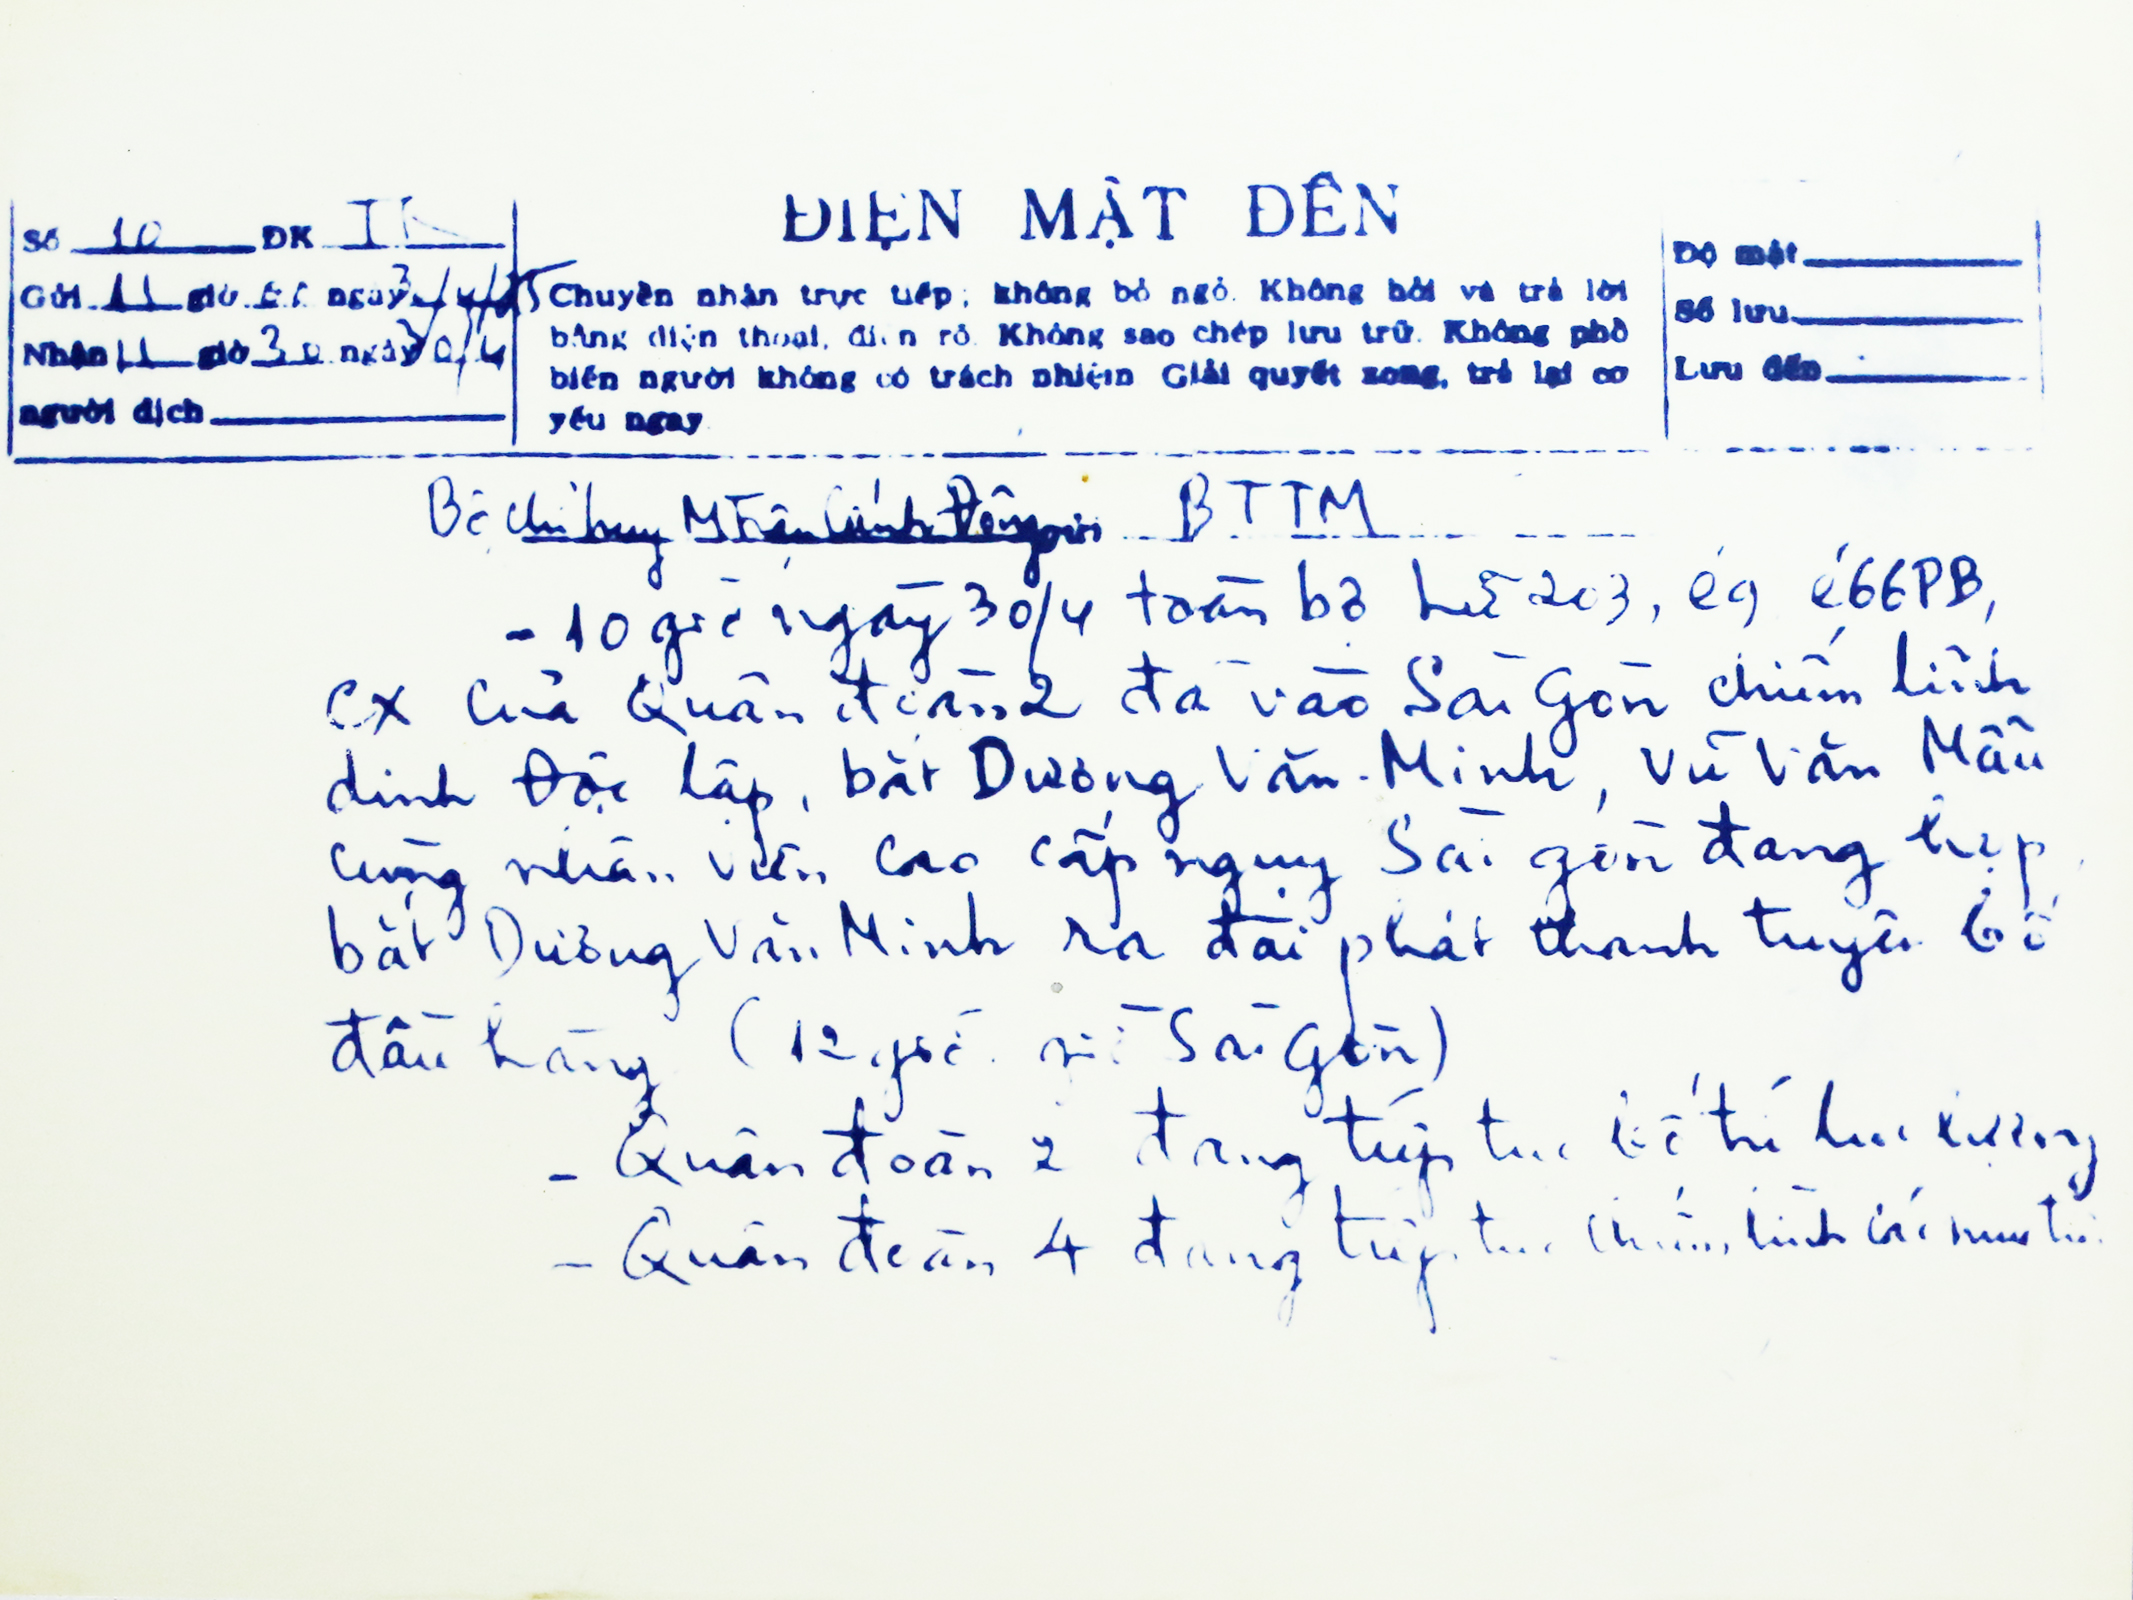 ĐIỆN MẬT ĐẾN
Số 10 ĐK
Gửi 11 giờ ngày
Nhận 11 giờ 30 ngày 30/4
người dịch
Chuyển nhận trực tiếp; không bỏ ngỏ. Không hỏi và trả lời
bằng điện thoại, điện rõ. Không sao chép lưu trữ. Không phổ
biến người không có trách nhiệm. Giải quyết xong, trả lại cơ
yếu ngay
Độ mật
Số lưu
Lưu đến
Bộ chỉ huy M Trận Cánh Đông gửi BTTM
- 10 giờ ngày 30/4 toàn bộ Lữ 203, e9 e66PB,
cx của Quân đoàn 2 đã vào Sài Gòn chiếm lĩnh
dinh Độc lập, bắt Dương Văn Minh, Vũ Văn Mẫu
cùng nhân viên cao cấp ngụy Sài gòn đang họp,
bắt Dương Văn Minh ra đài phát thanh tuyên bố
đầu hàng (12 giờ Sài Gòn)
- Quân đoàn 2 đang tiếp tục bố trí lực lượng
- Quân đoàn 4 đang tiếp tục chiếm lĩnh các mục tiêu